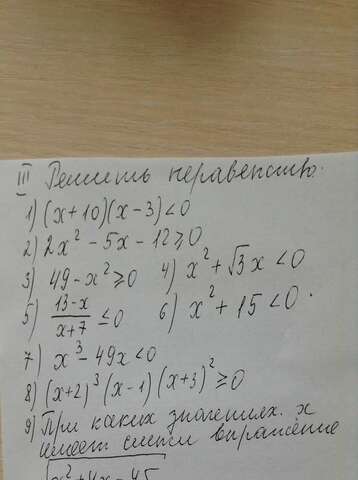 III Решить неравенство:
1) (x+10)(x-3)<0
2) 2x² - 5x - 12 ≥ 0
3) 49 - x² ≥ 0 4) x² + √3 x < 0
5) (13-x)/(x+7) ≤ 0 6) x² + 15 < 0.
7) x³ - 49x < 0
8) (x+2)³ (x-1) (x+3)² ≥ 0
9) При каких значениях x
имеет смысл выражение
√x² + 4x - 45